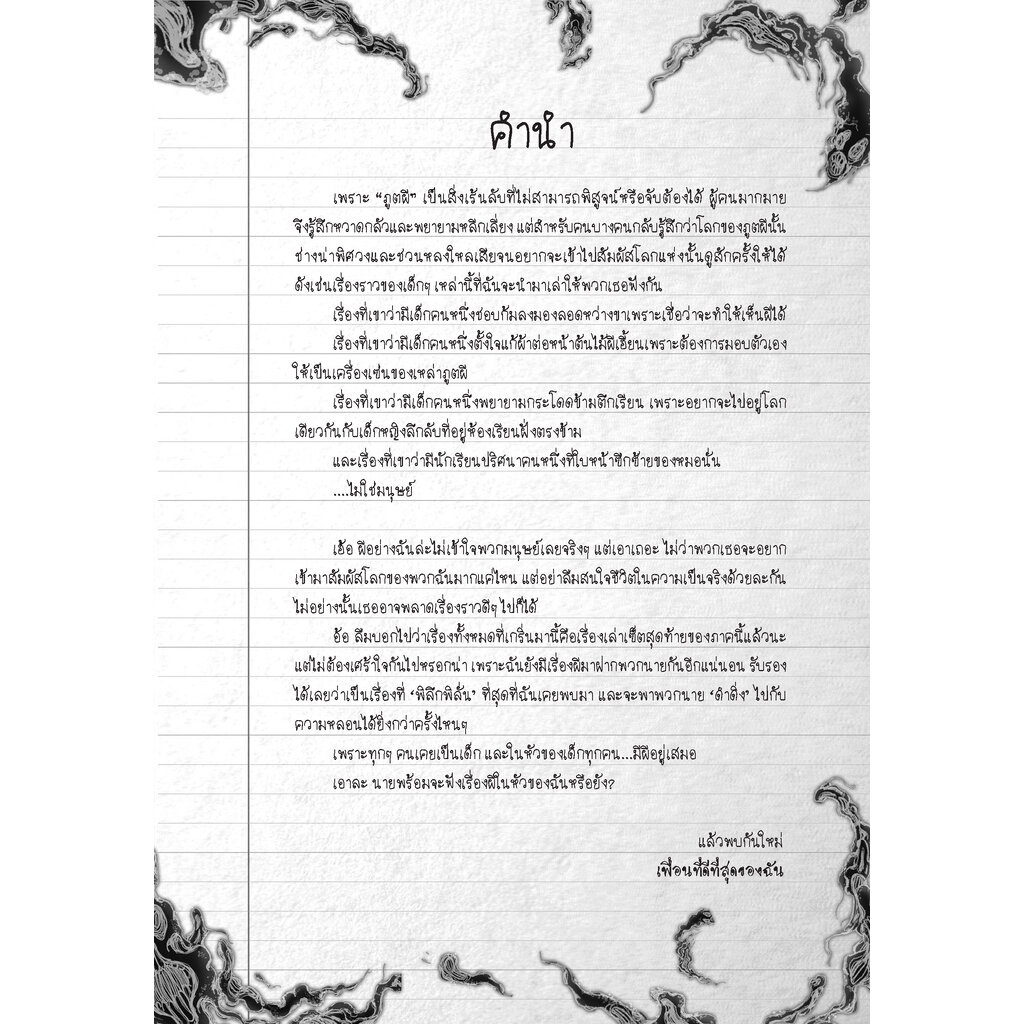 คำนำ
เพราะ “ภูตผี” เป็นสิ่งเร้นลับที่ไม่สามารถพิสูจน์หรือจับต้องได้ ผู้คนมากมาย
จึงรู้สึกหวาดกลัวและพยายามหลีกเลี่ยง แต่สำหรับคนบางคนกลับรู้สึกว่าโลกของภูตผีนั้น
ช่างน่าพิศวงและชวนหลงใหลเสียจนอยากจะเข้าไปสัมผัสโลกแห่งนั้นดูสักครั้งให้ได้
ดังเช่นเรื่องราวของเด็กๆ เหล่านี้ที่ฉันจะนำมาเล่าให้พวกเธอฟังกัน
เรื่องที่เขาว่ามีเด็กคนหนึ่งชอบก้มลงมองลอดหว่างขาเพราะเชื่อว่าจะทำให้เห็นผีได้
เรื่องที่เขาว่ามีเด็กคนหนึ่งตั้งใจแก้ผ้าต่อหน้าต้นไม้ผีเฮี้ยนเพราะต้องการมอบตัวเอง
ให้เป็นเครื่องเซ่นของเหล่าภูตผี
เรื่องที่เขาว่ามีเด็กคนหนึ่งพยายามกระโดดข้ามตึกเรียน เพราะอยากจะไปอยู่โลก
เดียวกันกับเด็กหญิงลึกลับที่อยู่ห้องเรียนฝั่งตรงข้าม
และเรื่องที่เขาว่ามีนักเรียนปริศนาคนหนึ่งที่ใบหน้าซีกซ้ายของหมอนั่น
....ไม่ใช่มนุษย์
เฮ้อ ผีอย่างฉันล่ะไม่เข้าใจพวกมนุษย์เลยจริงๆ แต่เอาเถอะ ไม่ว่าพวกเธอจะอยาก
เข้ามาสัมผัสโลกของพวกฉันมากแค่ไหน แต่อย่าลืมสนใจชีวิตในความเป็นจริงด้วยละกัน
ไม่อย่างนั้นเธออาจพลาดเรื่องราวดีๆ ไปก็ได้
อ้อ ลืมบอกไปว่าเรื่องทั้งหมดที่เกริ่นมานี้คือเรื่องเล่าเซ็ตสุดท้ายของภาคนี้แล้วนะ
แต่ไม่ต้องเศร้าใจกันไปหรอกน่า เพราะฉันยังมีเรื่องผีมาฝากพวกนายกันอีกแน่นอน รับรอง
ได้เลยว่าเป็นเรื่องที่ ‘พิลึกพิลั่น’ ที่สุดที่ฉันเคยพบมา และจะพาพวกนาย ‘ดำดิ่ง’ ไปกับ
ความหลอนได้ยิ่งกว่าครั้งไหนๆ
เพราะทุกๆ คนเคยเป็นเด็ก และในหัวของเด็กทุกคน...มีผีอยู่เสมอ
เอาละ นายพร้อมจะฟังเรื่องผีในหัวของฉันหรือยัง?
แล้วพบกันใหม่
เพื่อนที่ดีที่สุดของฉัน